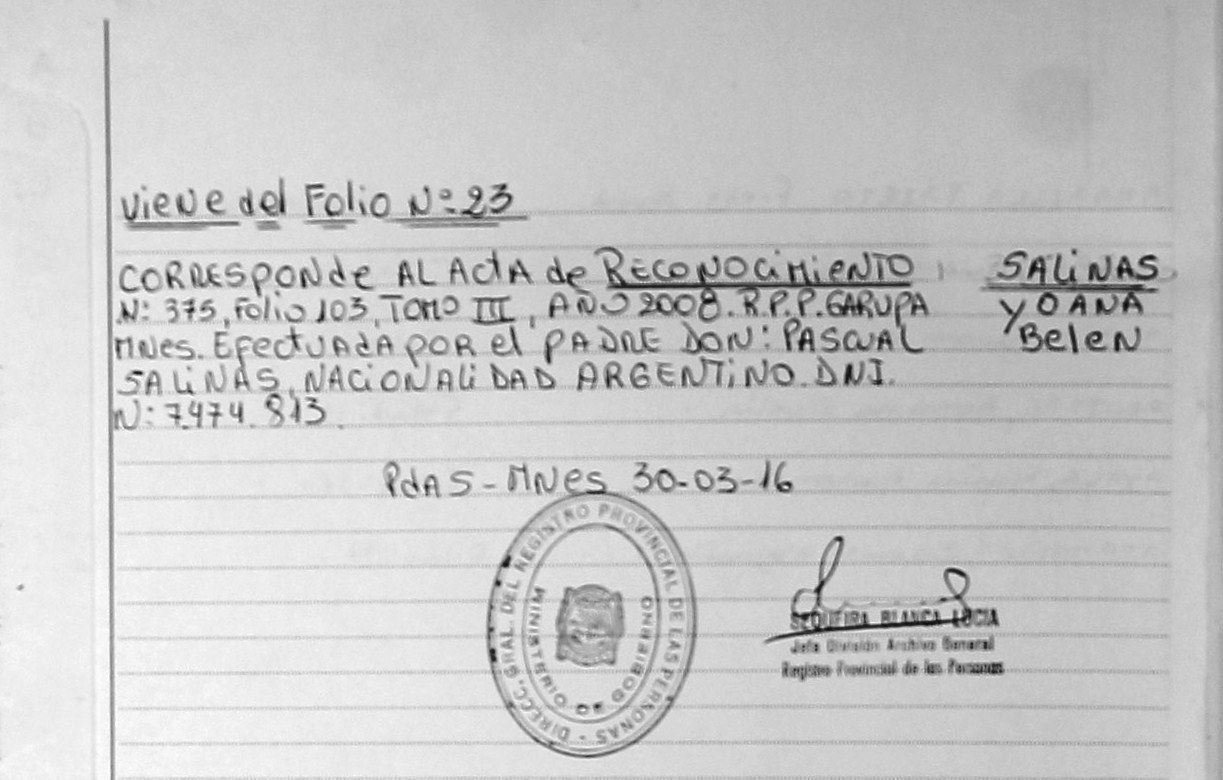 Viene del Folio Nº 23
CORRESPONde AL ActA de RECONOCiMiENTO,
N: 375, Folio 103, TOMO III, AÑO 2008. R.P.P. GARUPA
MNes. EfectUAdA POR el PADRE DON: PASCUAL
SALiNAS, NACiONALiDAD ARGENTiNO. DNI.
N: 7.474.813.
SALiNAS
YOANA
Belen
PdAS - MNes 30-03-16
DIRECC. GRAL. DEL REGISTRO PROVINCIAL DE LAS PERSONAS -
MINISTERIO DE GOBIERNO
SEQUEIRA BLANCA LUCIA
Jefa División Archivo General
Registro Provincial de las Personas